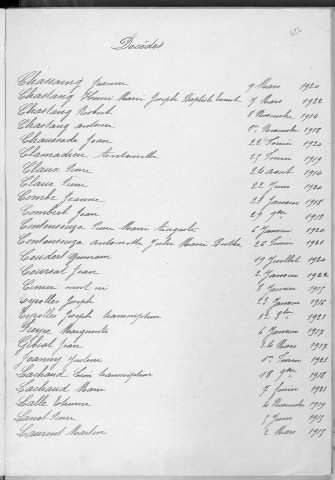 622
Décédés
Chassaing Jeanne 9 Mars 1920
Chastang Henri Marie Joseph Baptiste Ernest 7 Mars 1922
Chastang Robert 8 Novembre 1914
Chastang Antoine 1er Novembre 1918
Chaussade Jean 22 Février 1920
Clamadieu Antoinette 25 Février 1919
Claux 24 Août 1916
Claux 22 Juin 1920
Combe Jeanne 23 Janvier 1918
Combret Jean 29 9bre 1918
Contensouza Marie Auguste 6 Janvier 1920
Contensouza Antoinette Marie 26 Février 1921
Coudert 19 Juillet 1920
Courent Jean 2 Janvier 1922
mort né 8 Janvier 1915
Eyrolles Joseph 23 Janvier 1916
Eyrolles Joseph transcription 12 8bre 1921
Marguerite 6 Janvier 1917
Gibiat Jean 24 Mars 1917
Joanny 1er Février 1921
Lachaud transcription 18 9bre 1918
Lachaud Marie 7 Février 1921
Lalle Etienne 4 Novembre 1919
5 1915
Laurent Martin 2 Mars 1915